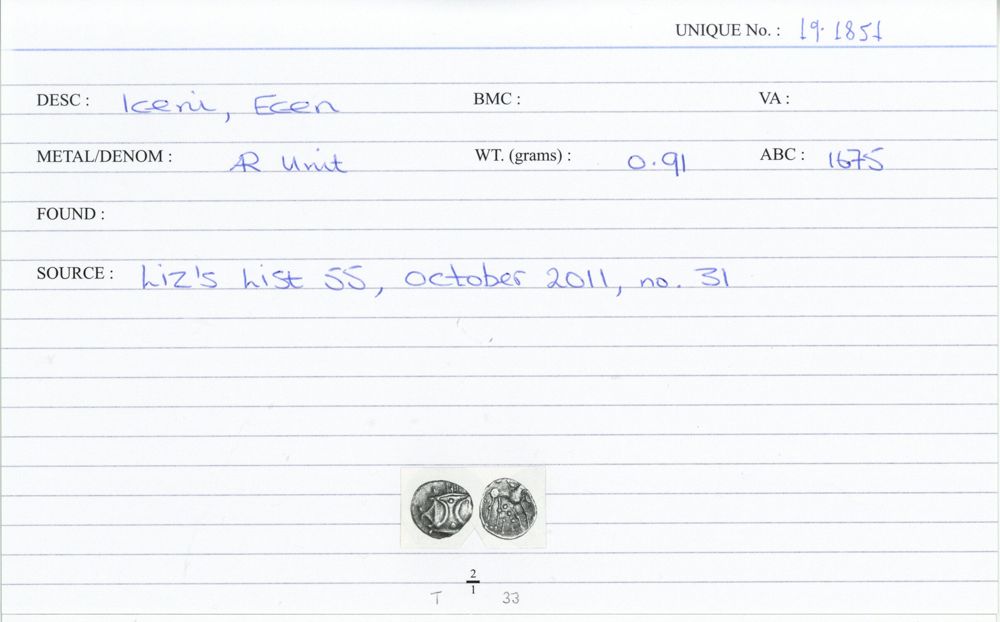 UNIQUE No. : 19.1851
DESC : Iceni, Ecen BMC : VA :
METAL/DENOM : AR Unit WT. (grams) : 0.91 ABC : 1675
FOUND :
SOURCE : Liz's List 55, October 2011, no. 31
2
1
T 33